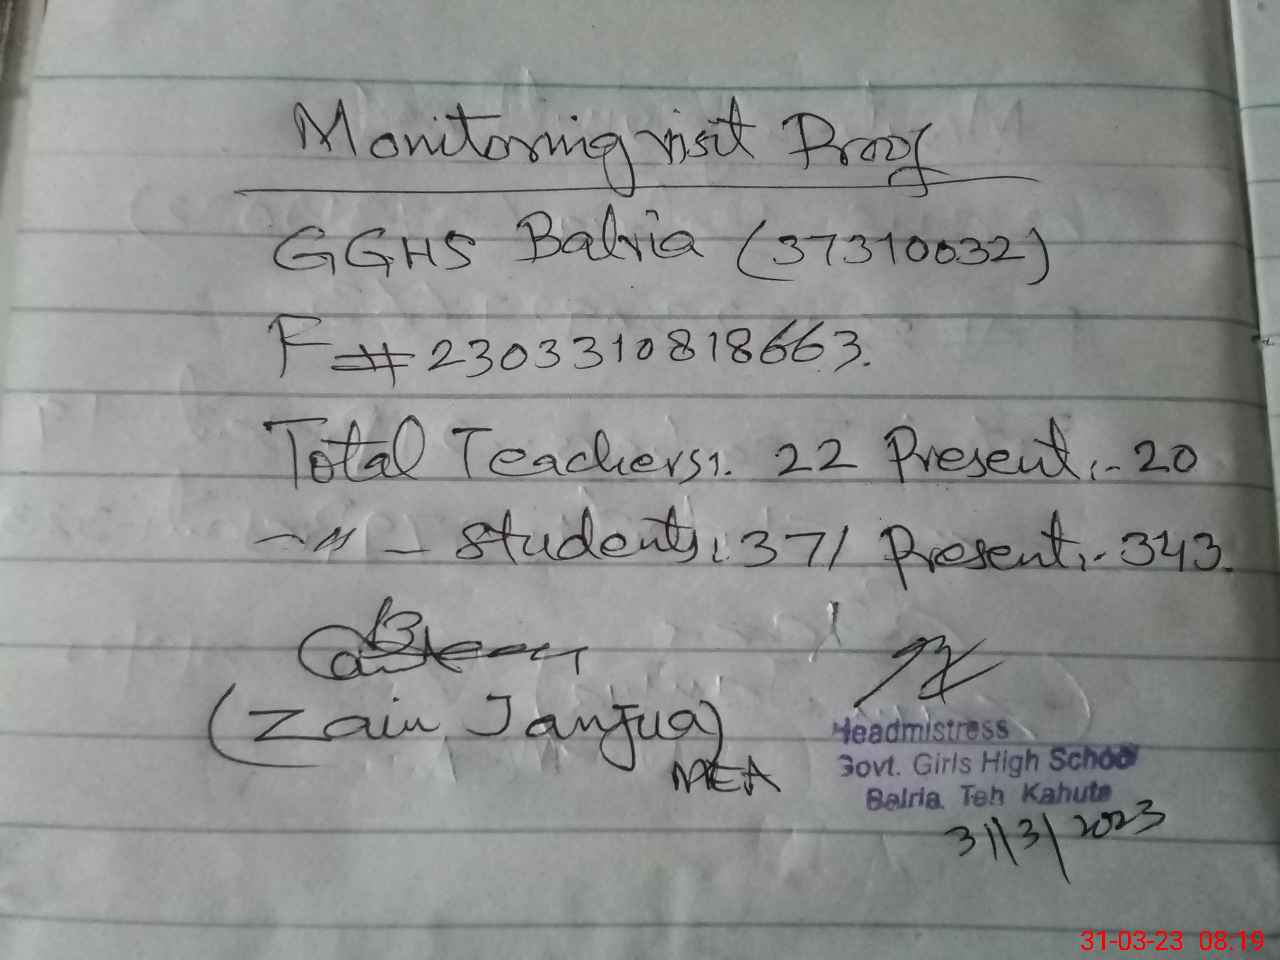 Monitoring visit Proof
GGHS Balria (37310032)
F # 2303310818663.
Total Teachers:. 22 Present:- 20
-〃- Students: 371 Present:- 343.
(Zain Janjua)
MEA
Headmistress
Govt. Girls High School
Balria. Teh Kahuta
31/3/2023
31-03-23 08:19